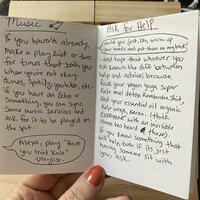 Music
If you haven't already,
make a play list or two
for tunes that sooth you
when you're not okay.
itunes, Spotify, youtube, etc.
If you have an Echo or
something, you can sync
some music services and
ask for it to be played on
the spot.
Alexa, play "Have
you tried Kale"
playlist.
Ask for Help
Could you just, like, warm up
your hands and put them on my back?
and hope that whoever you
ask knows the diff between
help and advice because
fuck your vegan yoga super
Kale and detox Kombucha shit
and your essential oil organic
Kelp wraps, Karen. I think
Everyone with an invisible
illness has heard
If you know something that
will help, even if its just
having someone sit with
your ask.